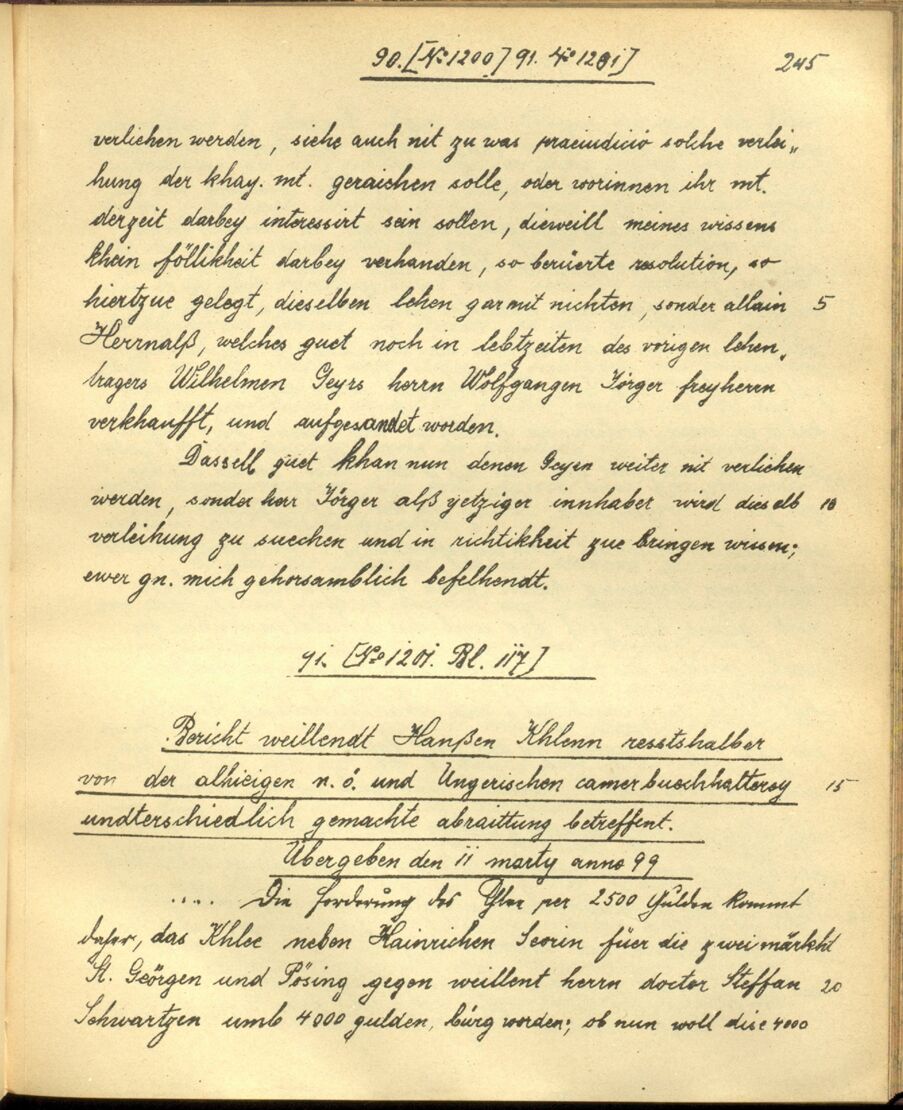 90. [№ 1200] 91. № 1201] 245
verlichen werden, siehe auch nit zu was praeiudicio solche verlei„
hung der khay. mt. geraichen solle, oder worinnen ihr mt.
derzeit darbey interessirt sein sollen, dieweill meines wissens
khein föllikheit darbey verhanden, so berüerte resolution, so
hiertzue gelegt, dieselben lehen gar mit nichten, sonder allain 5
Herrnalß, welches guet noch in lebtzeiten des vorigen lehen„
tragers Wilhelmen Geyrs herrn Wolfgangen Jörger freyherrn
verkhaufft, und aufgesandet worden.
Dassell guet khan nun denen Geyen weiter nit verlichen
werden, sonder herr Jörger alß yetziger innhaber wird dieselb 10
verleihung zu suechen und in richtikheit zue bringen wissen;
ewer gn. mich gehorsamblich befelhendt.
91. [№ 1201. Bl. 117]
Bericht weillendt Hanßen Khlenn resstshalber
von der alhieigen n. ö. und Ungerischen camerbuechhalterey 15
undterschiedlich gemachte abraittung betreffent.
Übergeben den 11 marty anno 99
.... Die forderung des per 2500 Gulden kommt
daher, das Khlee neben Hainrichen Scorin füer die zwei märkht
St. Geörgen und Pösing gegen weillent herrn doctor Steffan 20
Schwartzen umb 4000 gulden, bürg worden; ob nun woll dise 4000